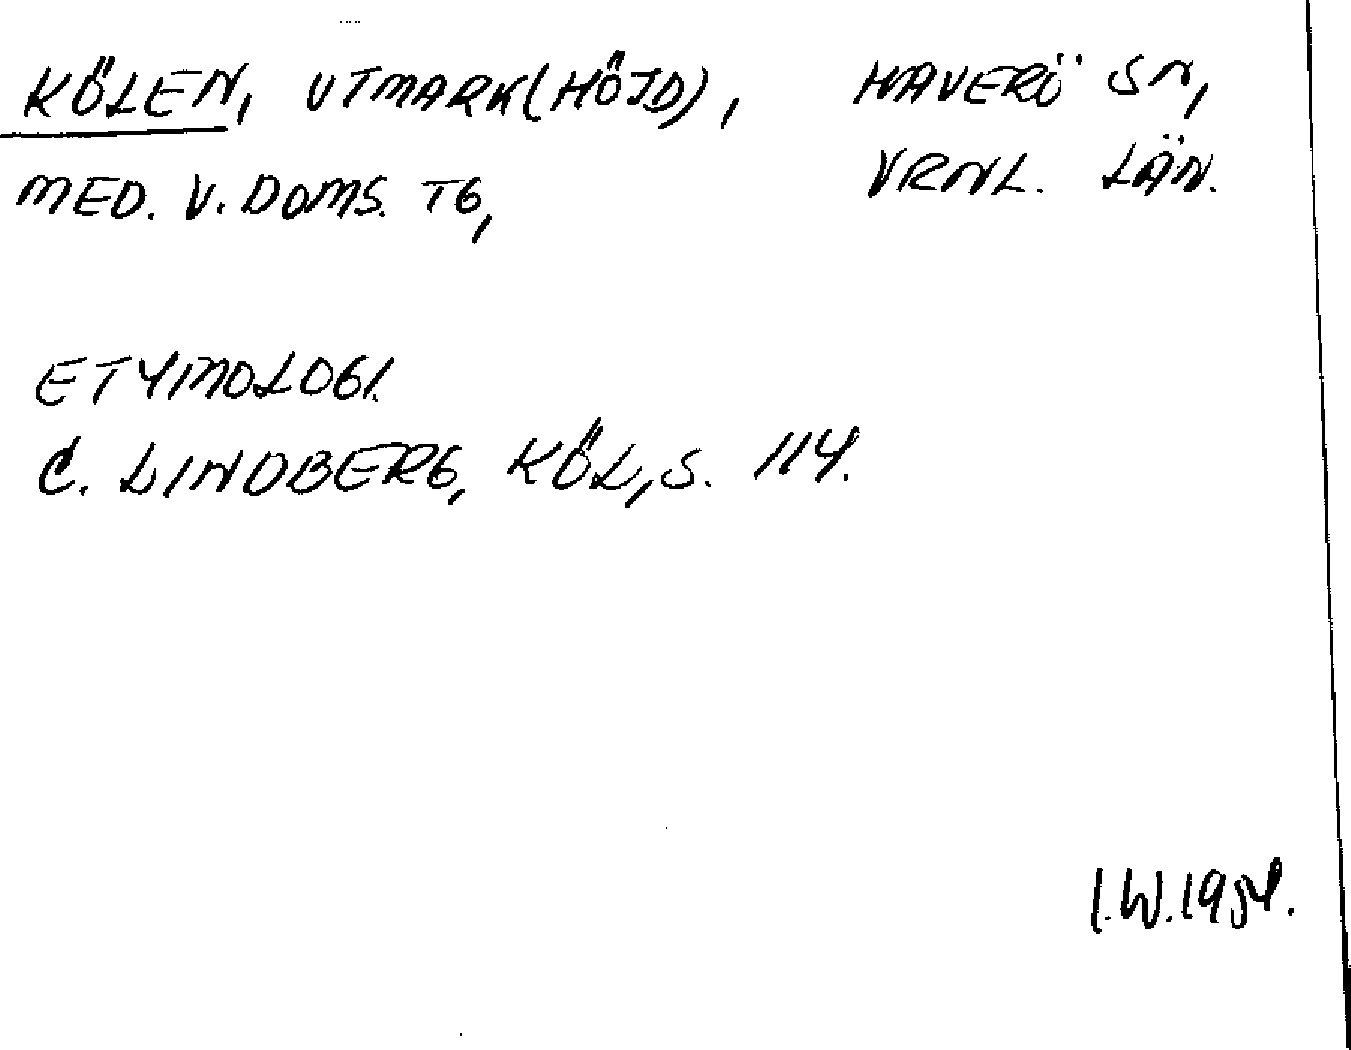 KÖLEN, UTMARK (HÖJD), HAVERÖ SN,
MED. V. DOMS. TG, VRNL. LÄN.
ETYMOLOGI.
C. LINDBERG, KÖL, S. 114.
I.W. 1954.